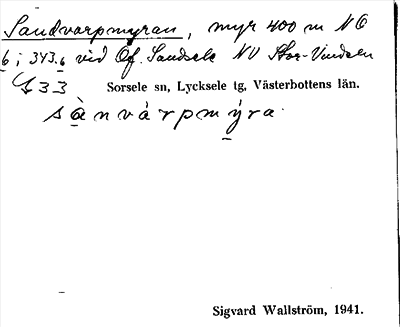 Sandvarpmyran, myr 400 m NO
6; 343.6 vid Öf. Sandsele NV Stor-Vindeln
Y33 Sorsele sn, Lycksele tg, Västerbottens län.
sànvárpmýra.
Sigvard Wallström, 1941.